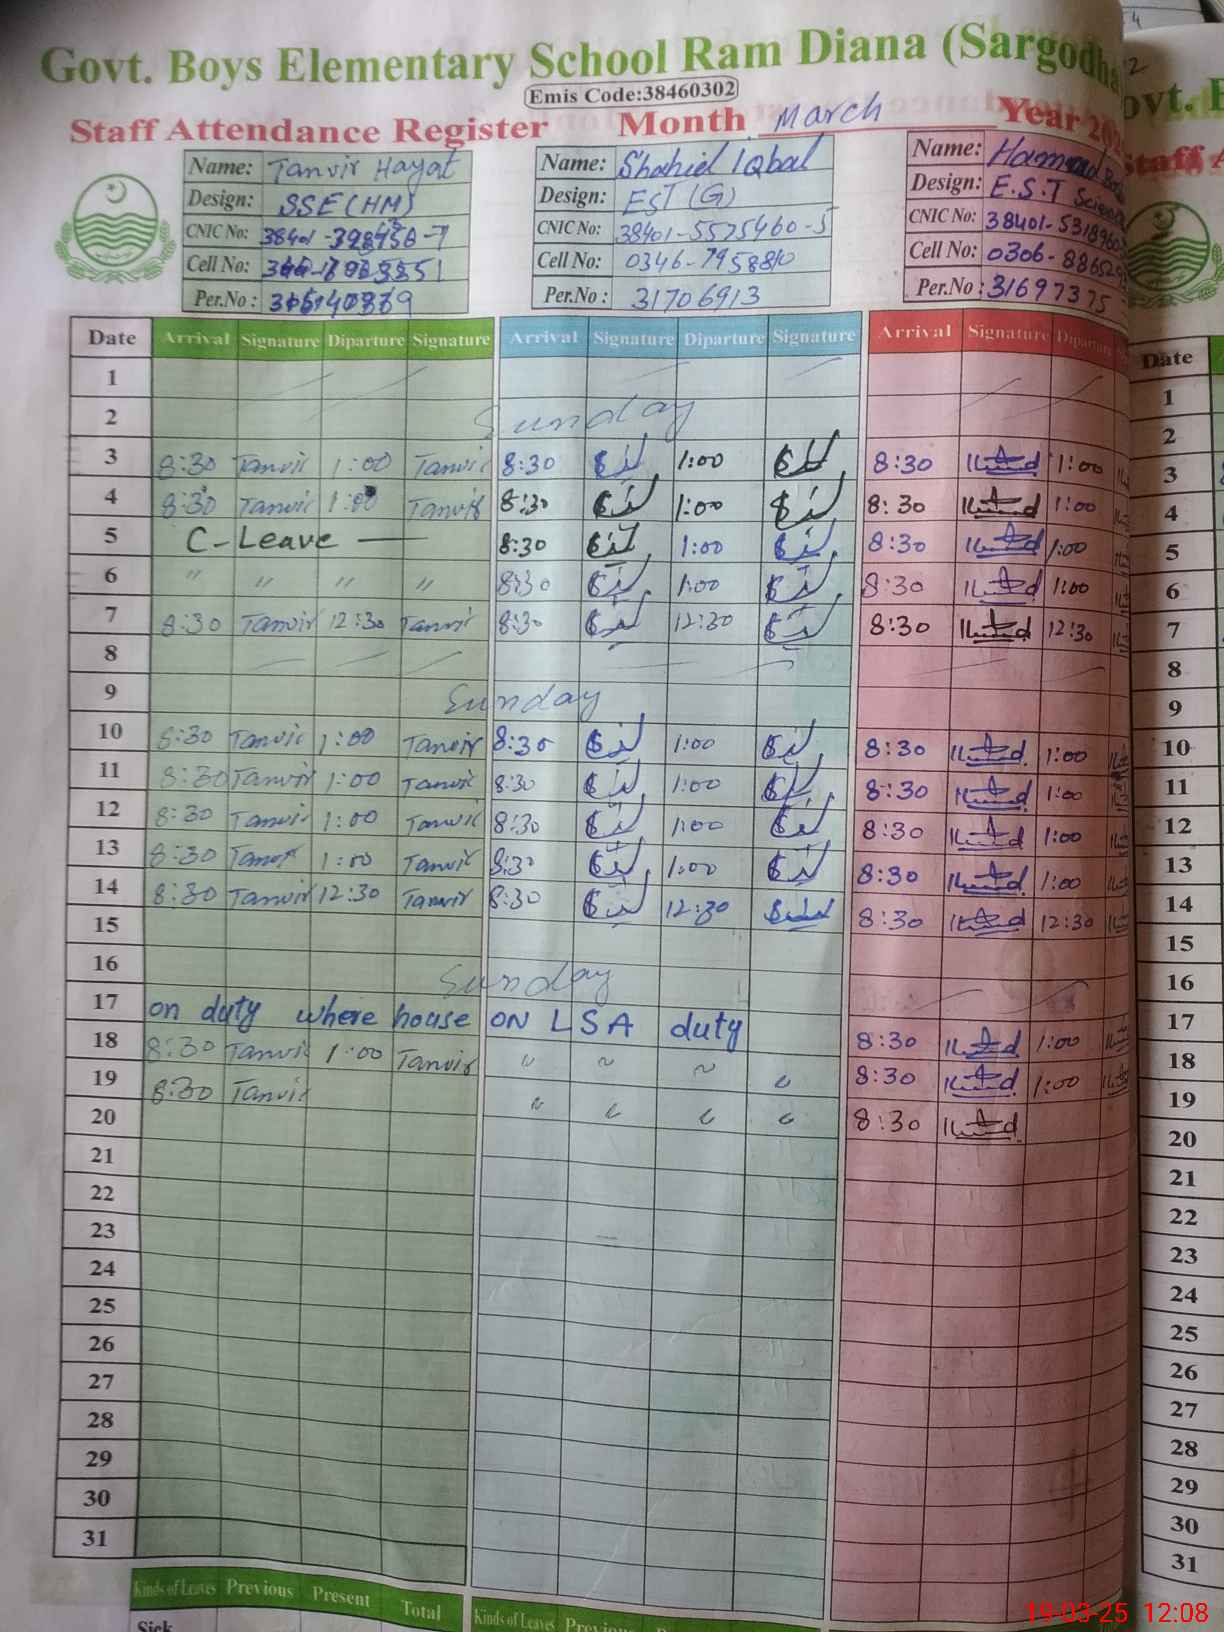 Govt. Boys Elementary School Ram Diana (Sargodha
Emis Code:38460302
Staff Attendance Register Month March Year 202
Name: Tanvir Hayat
Design: SSE (HM)
CNIC No:
Cell No:
Per.No :
Name: Shahid Iqbal
Design: EST (G)
CNIC No: 38401-5575460-5
Cell No: 0346-7958810
Per.No : 31706913
Name: Hammad
Design: E.S.T Science
CNIC No: 38401-5318960
Cell No: 0306-886529
Per.No : 31697375
Date Arrival Signature Diparture Signature Arrival Signature Diparture Signature Arrival Signature Diparture
1
2 Sunday
3 8:30 Tanvir 1:00 Tanvir 8:30 1:00 8:30 1:00
4 8:30 Tanvir 1:00 Tanvir 8:30 1:00 8:30 1:00
5 C-Leave 8:30 1:00 8:30 1:00
6 " " " " 8:30 1:00 8:30 1:00
7 8:30 Tanvir 12:30 Tanvir 8:30 12:30 8:30 12:30
8
9 Sunday
10 8:30 Tanvir 1:00 Tanvir 8:30 1:00 8:30 1:00
11 8:30 Tanvir 1:00 Tanvir 8:30 1:00 8:30 1:00
12 8:30 Tanvir 1:00 Tanvir 8:30 1:00 8:30 1:00
13 8:30 Tanvir 1:00 Tanvir 8:30 1:00 8:30 1:00
14 8:30 Tanvir 12:30 Tanvir 8:30 12:30 8:30 12:30
15
16 Sunday
17 on duty where house ON LSA duty 8:30 1:00
18 8:30 Tanvir 1:00 Tanvir " " " " 8:30 1:00
19 8:30 Tanvir " " " " 8:30
20
21
22
23
24
25
26
27
28
29
30
31
Kinds of Leaves Previous Present Total
Sick
Kinds of Leaves
Date
1
2
3
4
5
6
7
8
9
10
11
12
13
14
15
16
17
18
19
20
21
22
23
24
25
26
27
28
29
30
31
19-03-25 12:08